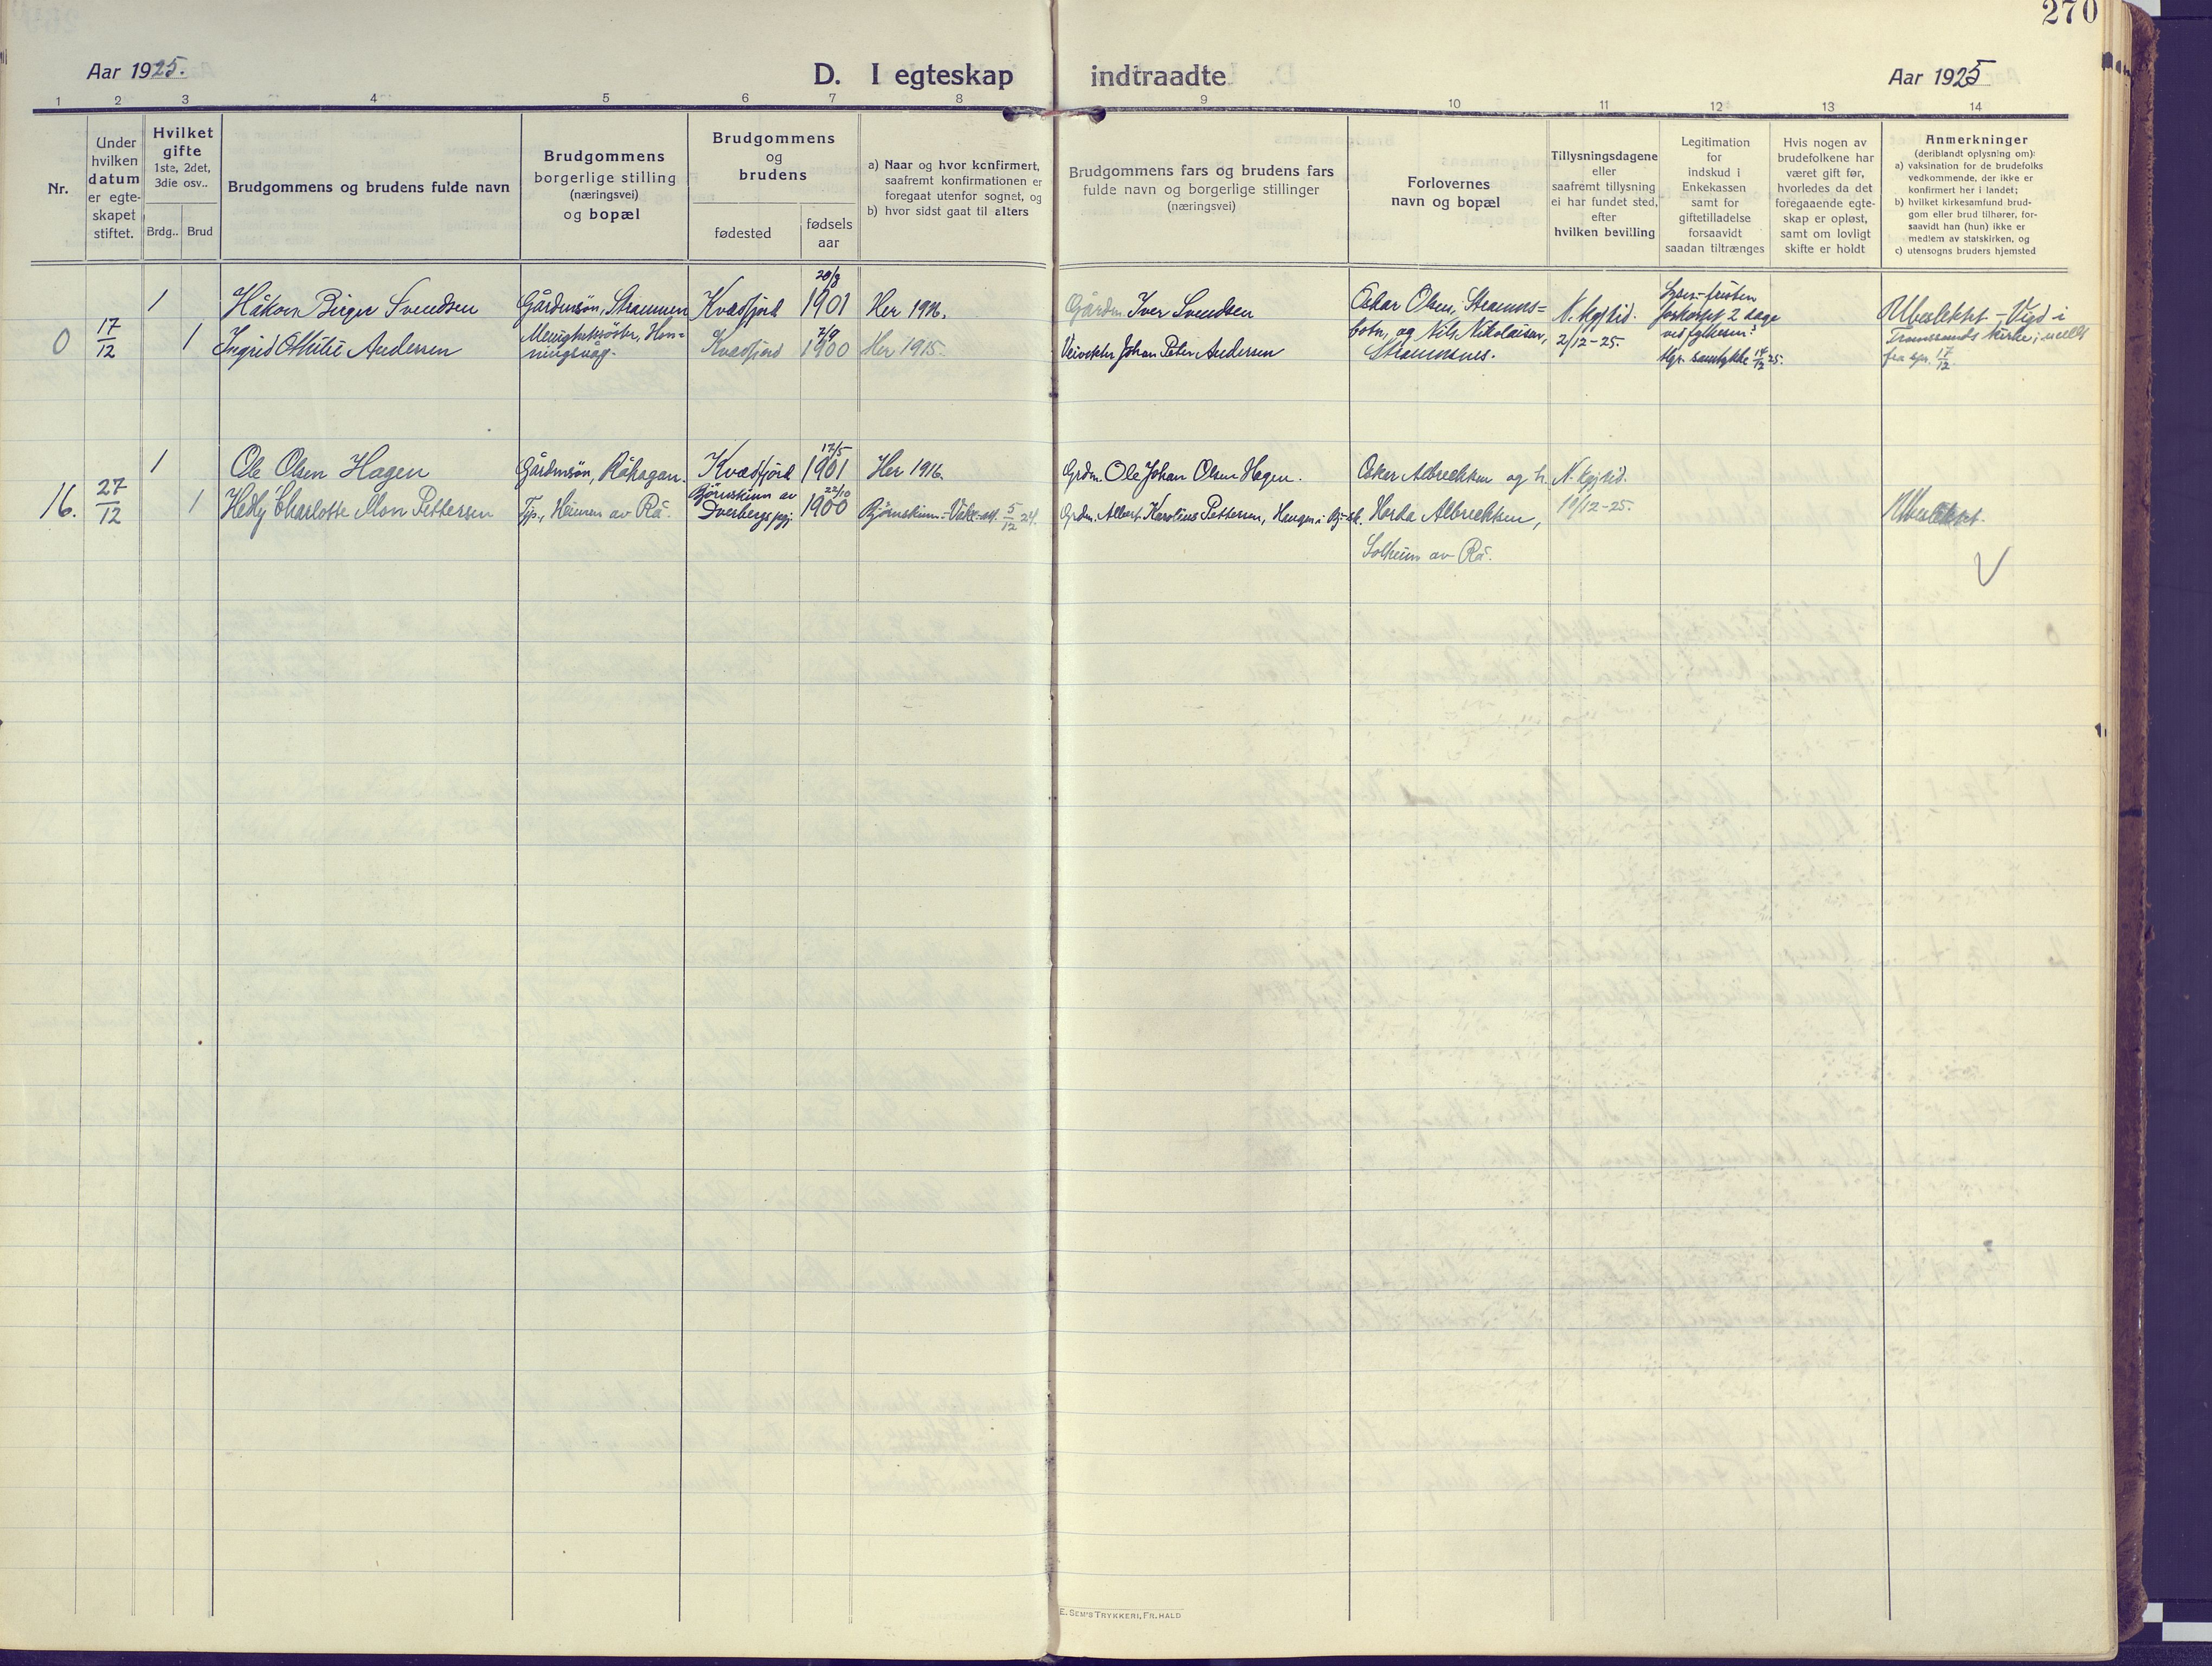 270
Aar 1925.
D. I egteskap indtraadte
Aar 1925
1 2 3 4 5 6 7 8 9 10 11 12 13 14
Nr.
Under
hvilken
datum
er egte-
skapet
stiftet.
Hvilket
gifte
1ste, 2det,
3die osv..
Brdg.. Brud
Brudgommens og brudens fulde navn
Brudgommens
borgerlige stilling
(næringsvei)
og bopæl
Brudgommens
og
brudens
fødested
fødsels
aar
a) Naar og hvor konfirmert,
saafremt konfirmationen er
foregaat utenfor sognet, og
b) hvor sidst gaat til alters
Brudgommens fars og brudens fars
fulde navn og borgerlige stillinger
(næringsvei)
Forlovernes
navn og bopæl
Tillysningsdagene
eller
saafremt tillysning
ei har fundet sted,
efter
hvilken bevilling
Legitimation
for
indskud i
Enkekassen
samt for
giftetilladelse
forsaavidt
saadan tiltrænges
Hvis nogen av
brudefolkene har
været gift før,
hvorledes da det
foregaaende egte-
skap er opløst,
samt om lovligt
skifte er holdt
Anmerkninger
(deriblandt oplysning om):
a) vaksination for de brudefolks
vedkommende, der ikke er
konfirmert her i landet;
b) hvilket kirkesamfund brud-
gom eller brud tilhører, for-
saavidt han (hun) ikke er
medlem av statskirken, og
c) utensogns bruders hjemsted
0
17/12
1
Håkon Birger Svendsen
Gårdmsøn, Straumen
Kvædfjord
20/8
1901
Her 1916.
Gårdm. Iver Svendsen
1
Ingrid Othilie Andersen
Menighetssøster, Hon-
ningsvåg.
Kvædfjord
7/9
1900
Her 1915.
Johan Peter Andersen
Oskar Olsen, Straums=
botn, og Nils Nikolaisen,
Straumsnes.
N. kgj.tid.
2/12-25.
forkortet 2 dage
samtykke 14/12 25.
Ubeslektet - Viet i
Tromsøsunds kirke; meldt
fra spr. 17/12.
16.
27/12
1
Ole Olsen Hagen
Gårdmsøn, Råhagan.
Kvædfjord
17/5
1901
Her 1916.
Grdm. Ole Johan Olsen Hagen.
1
Hedly Charlotte Mon Pettersen
Tjp., Heimen av Rå.
Bjørnskinn av
Dverbergs pgj.
22/10
1900
Bjørnskinn.-Vake-att. 5/12 24.
Grdm. Albert Karolius Pettersen, Haugen i Bj-sk.
Oskar Albrektsen og h.
Herda Albrektsen,
Solheim av Rå.
N. kgj.tid.
19/12-25.
Ubeslektet.
E. SEM'S TRYKKERI, FR.HALD